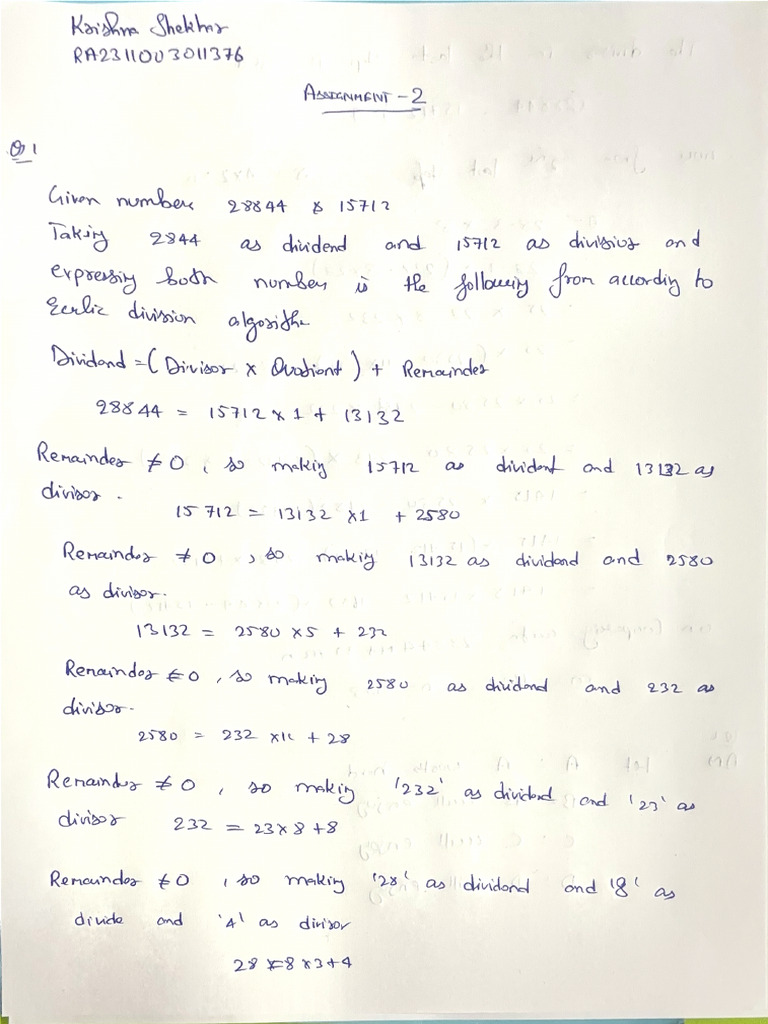 Krishna Shekhar
RA2311003011376
ASSIGNMENT - 2
Q1
Given numbers 28844 & 15712
Taking 2844 as dividend and 15712 as divisior and
expressing both numbers is the following from according to
division algorithm
Dividend = (Divisor x Quotient) + Remainder
28844 = 15712 x 1 + 13132
Remainder ≠ 0, so making 15712 as dividend and 13132 as
divisor.
15712 = 13132 x1 + 2580
Remainder ≠ 0, so making 13132 as dividend and 2580
as divisor.
13132 = 2580 x5 + 232
Remainder ≠ 0, so making 2580 as dividend and 232 as
divisor.
2580 = 232 x11 + 28
Remainder ≠ 0, so making '232' as dividend and '23' as
divisor 232 = 23x8+8
Remainder ≠ 0, so making '28' as dividend and '8' as
divide and '4' as divisor
28 = 8x3+4